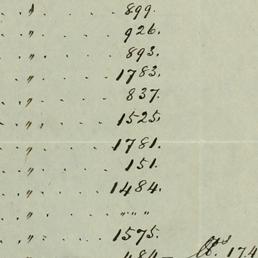 " 899.
" 926.
" 893.
" 1783.
" 837.
" 1525.
" 1781.
" 151.
" 1484.
" " " "
" 1575.
" 484 — 174